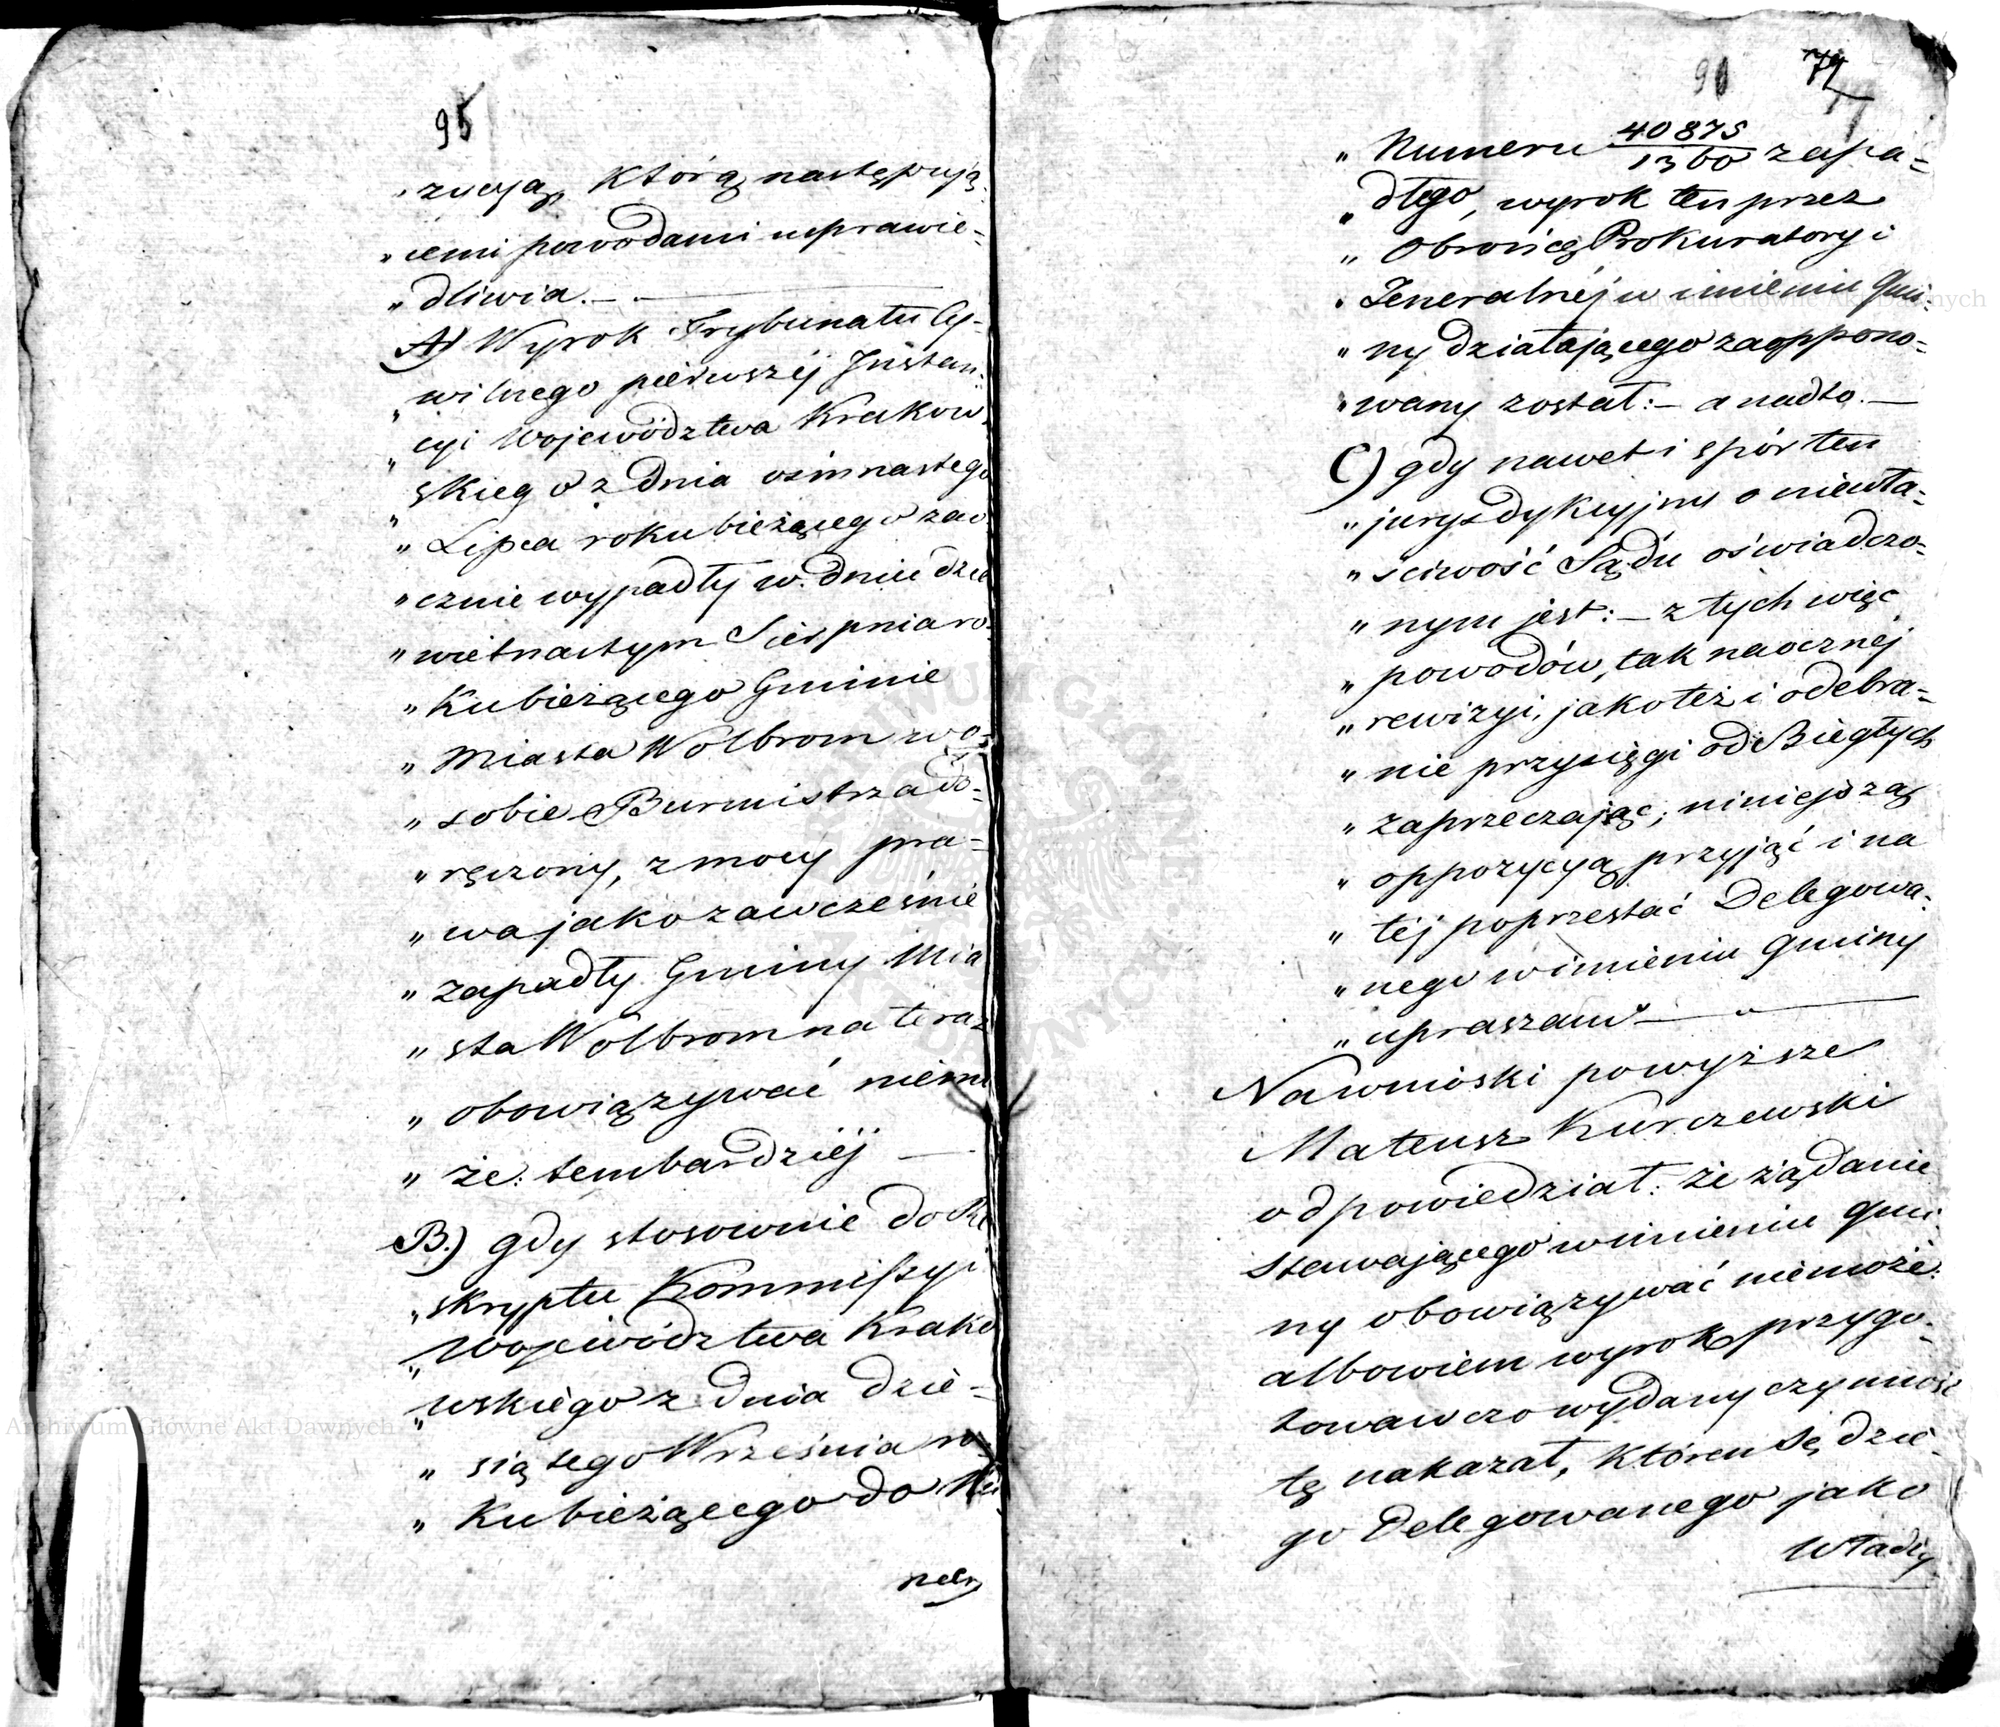 95
„ zucyą, którą następują-
„ cemi powodami usprawie-
„ dliwia. —
A) Wyrok Trybunatu Cy-
„ wilnego pierwszéj Instan-
„ cyi Województwa Krakow-
„ skiego z dnia ośmnastego
„ Lipca roku bieżącego zao
„ cznie wypadły w. dniu dzie
„ wietnastym Sierpnia ro-
„ ku bieżącego Gminie
„ Miasta Wolbrom w o-
„ sobie Burmistrza do-
„ ręczony, z mocy pra-
„ wa jako zawcześnie
„ zapadły Gminy Mia
„ sta Wolbrom na teraz
„ obowiązywać niemo
„ że: tembardziéj —
B.) gdy stosownie do Re
„ skryptu Kommissyi
„ Województwa Krako
„ wskiego z dnia dzie-
„ siątego Września ro-
„ ku bieżącego do Nu
90 72
„ Numeru 40875/1360 zapa-
„ dłego, wyrok ten przez
„ Obrońcę Prokuratoryi
„ Jeneralnéj w imieniu Gmi-
„ ny działającego zaoppono-
„ wany został: — a nadto. —
C) gdy nawet i spór ten
„ jurysdykcyjny o niewła-
„ sciwość Sądu oświadczo-
„ nym jest: — z tych więc
„ powodów, tak naocznéj
„ rewizyi, jakoteż i odebra-
„ nie przysięgi od Biegłych
„ zaprzeczając, niniejszą
„ oppozycyą przyjąć i na
„ téj poprzestać Delegowa-
„ nego w imieniu Gminy
„ upraszam —
Na wnioski powyższe
Mateusz Kurczewski
odpowiedział: że żądanie
stawającego w imieniu Gmi-
ny obowiązywać niemoże:
albowiem wyrok przygo-
towawczo wydany czynność
tę nakazał, któren Sędzie-
go Delegowanego jako
Władzy
Archiwum Główne Akt Dawnych
Archiwum Główne Akt Dawnych